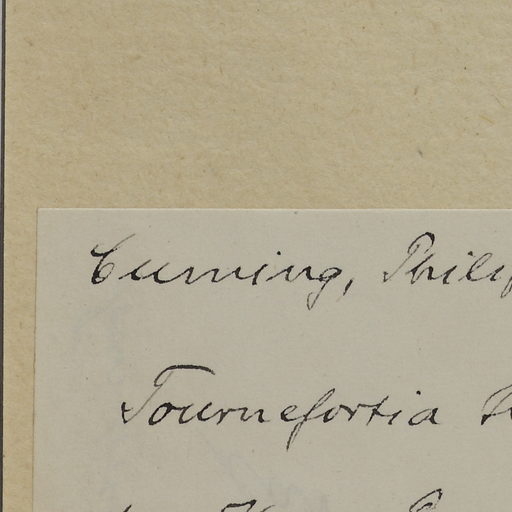 Cuming, Philip
Tournefortia